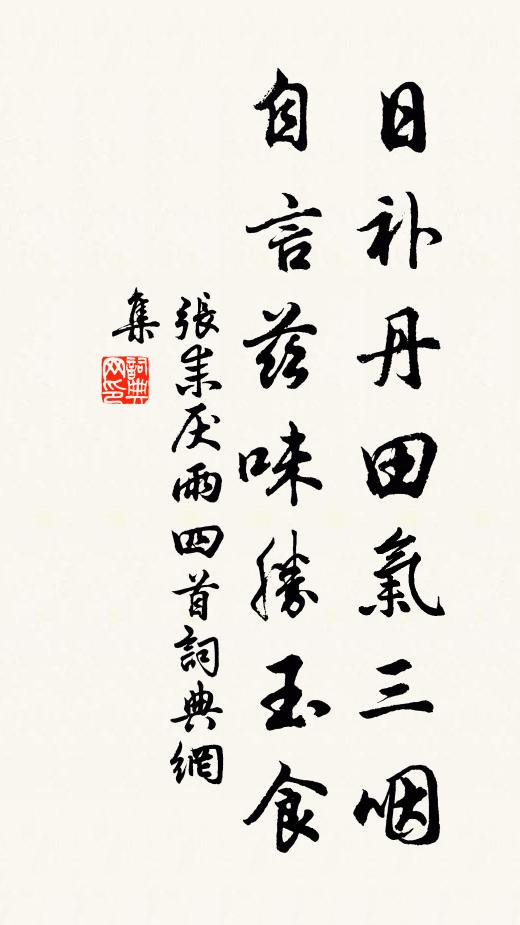 日补丹田氣三咽
自言兹味勝玉食
張耒厌雨四首詞典網
集
詞典网印